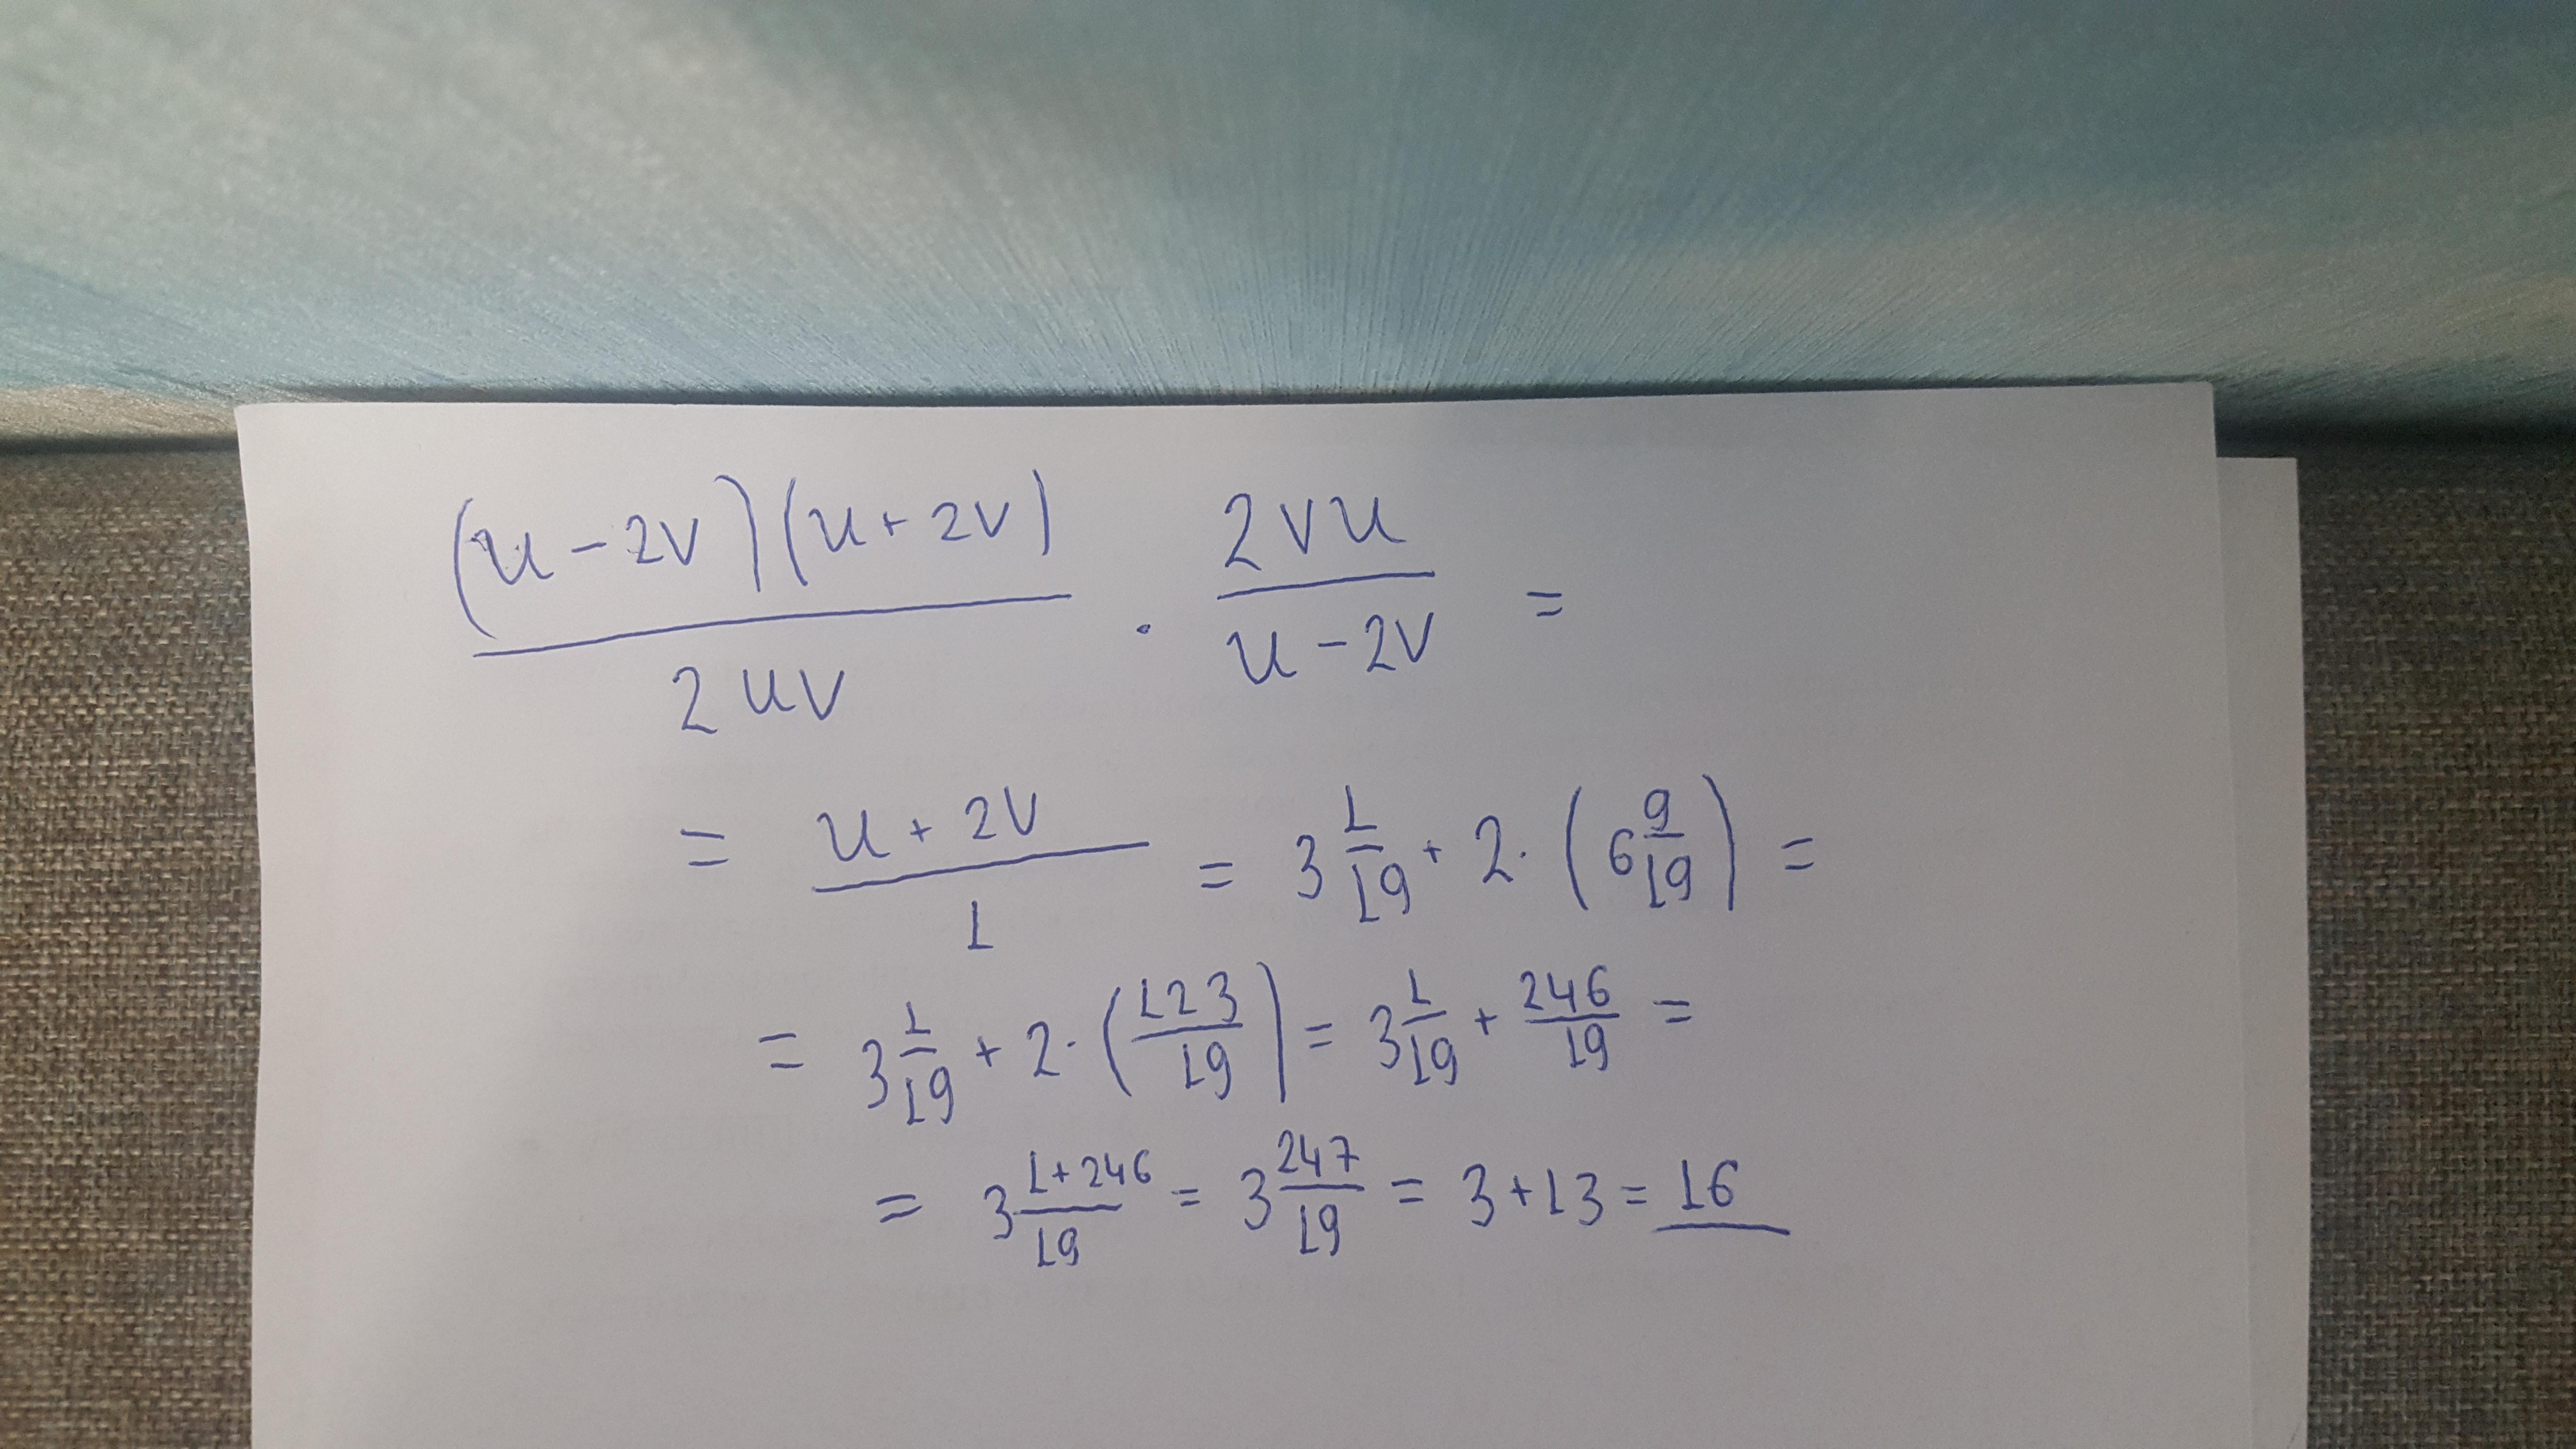 (u - 2v)(u + 2v) / 2uv · 2vu / u - 2v =
= u + 2v / 1 = 3 1/19 + 2 · (6 9/19) =
= 3 1/19 + 2 · (123/19) = 3 1/19 + 246/19 =
= 3 1+246/19 = 3 247/19 = 3 + 13 = 16